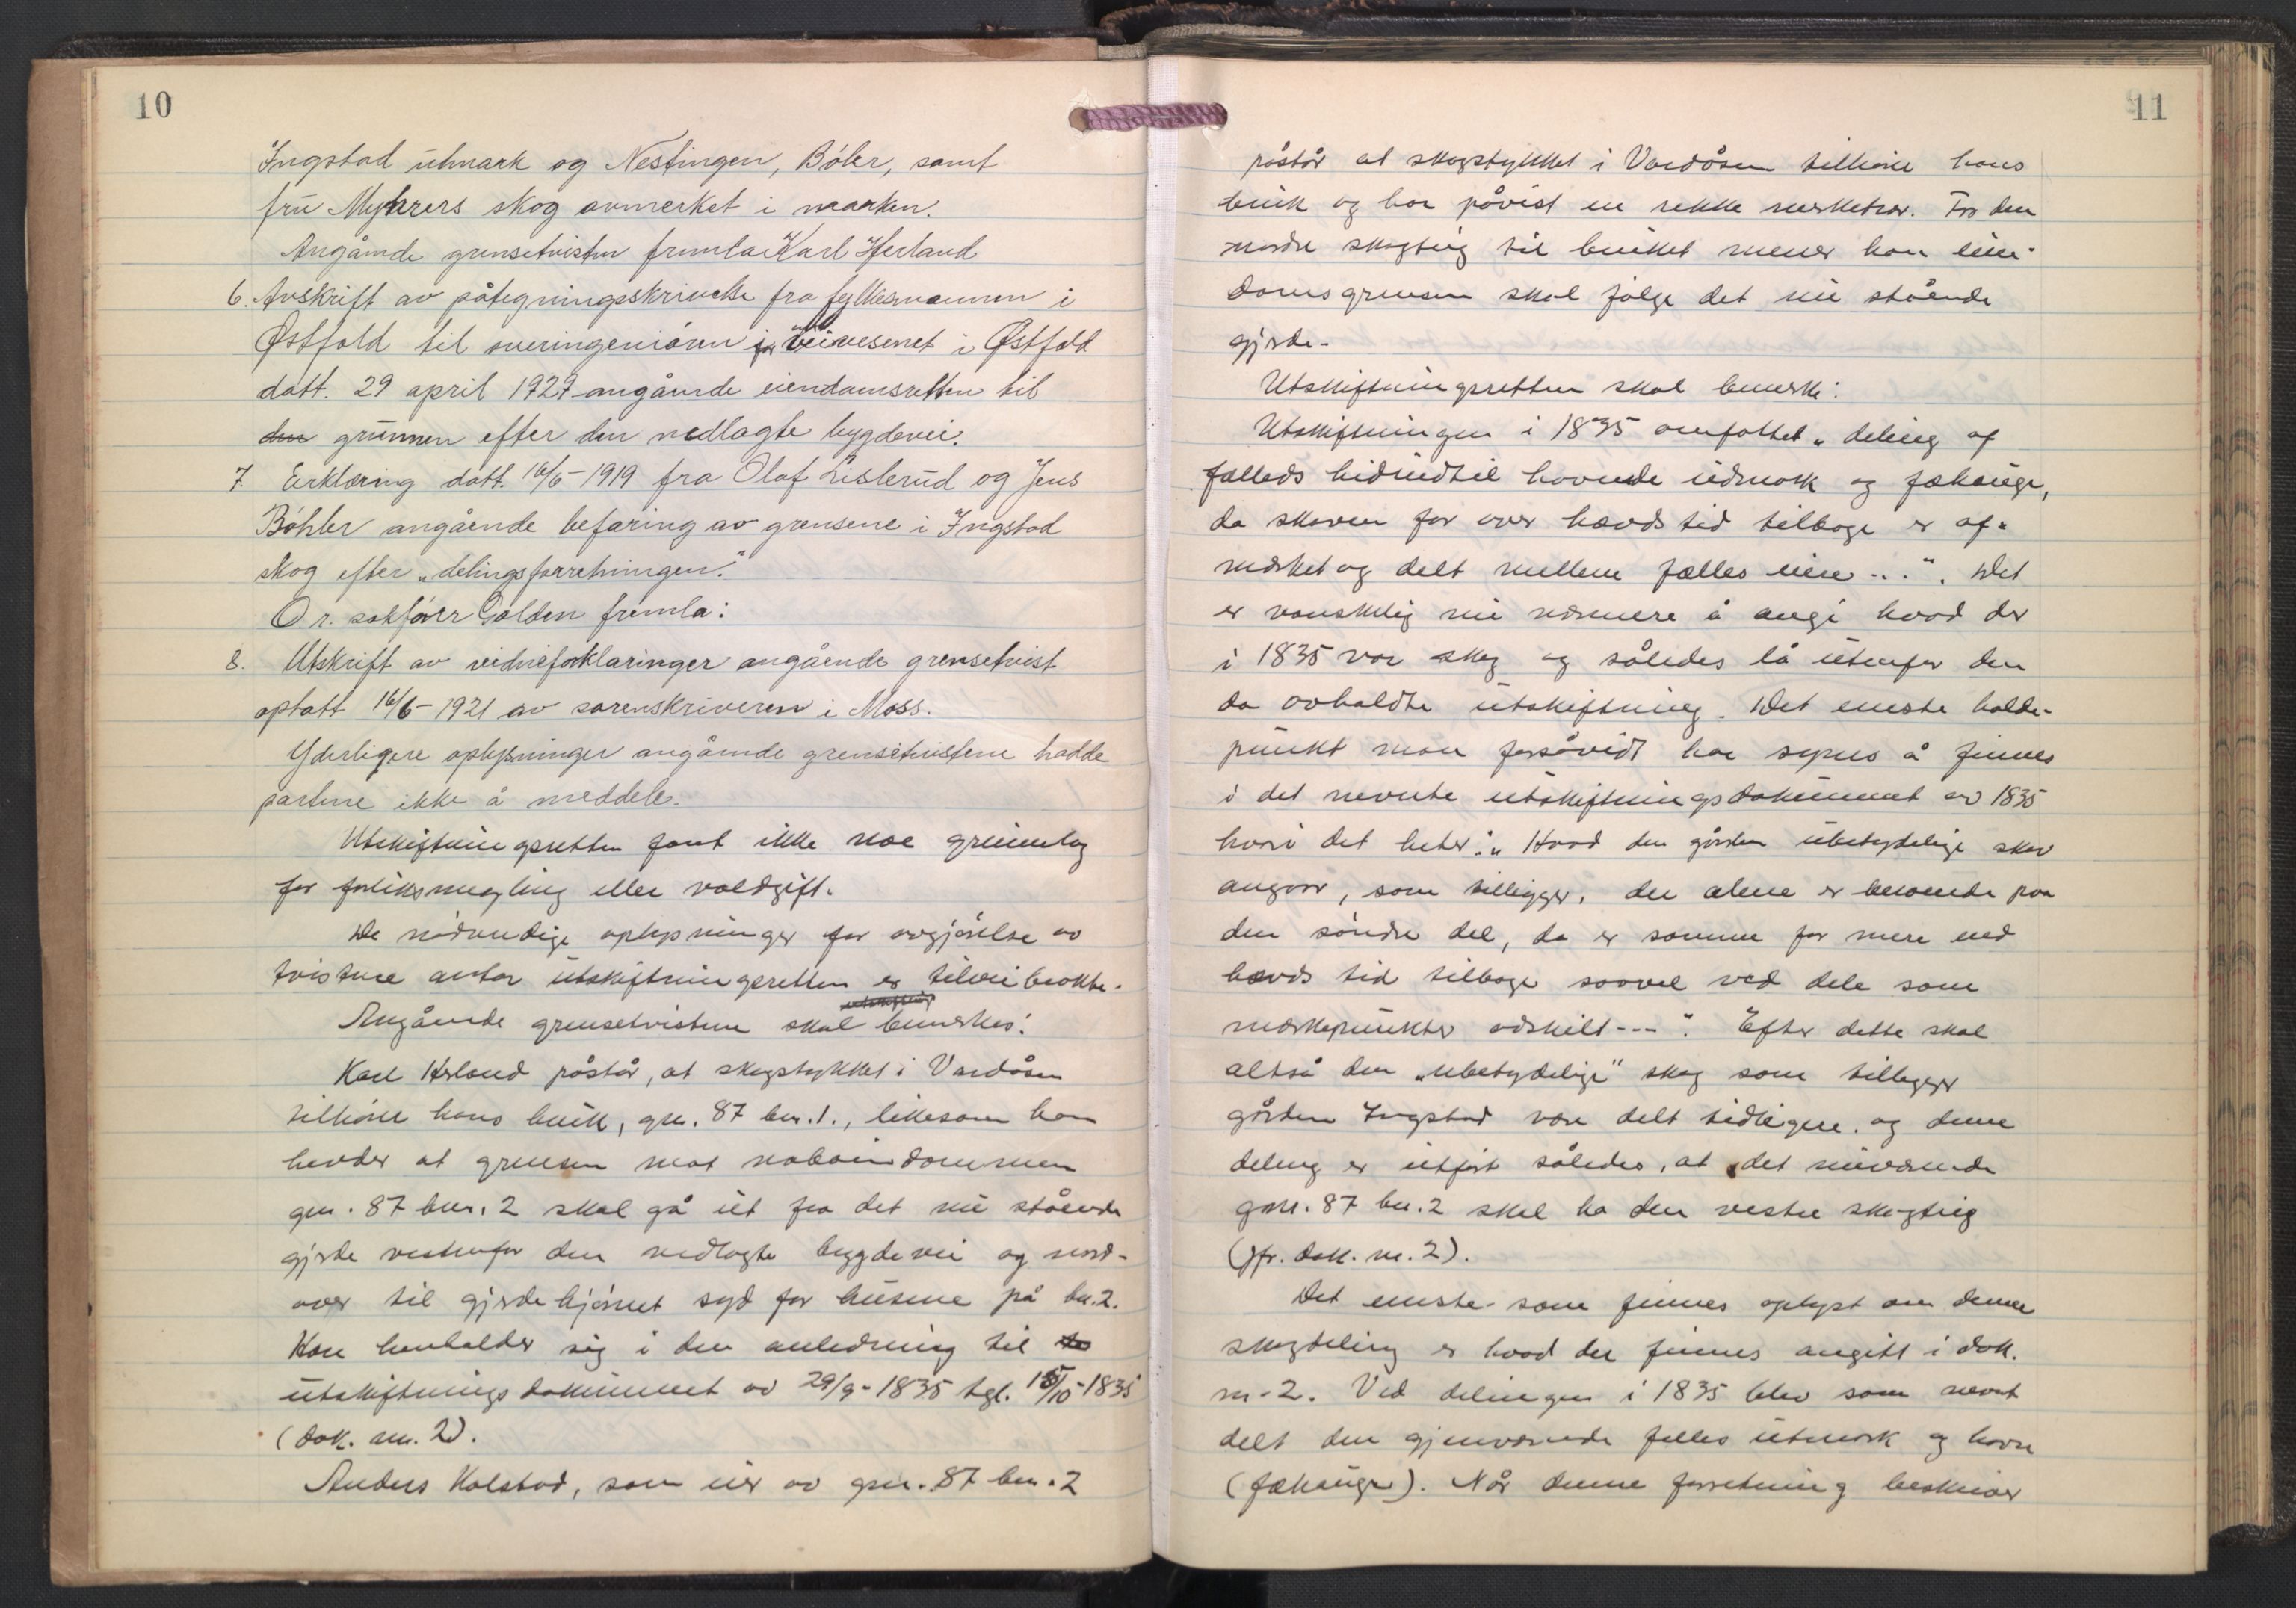 10
Ingstad utmark og Nestingen, Bøler, samt
fru Myhrers skog avmerket i marken.
Angående grensetvisten fremla Karl Herland
6. Avskrift av påtegningsskrivelse fra fylkesmannen i
Østfold til overingeniøren for veivesenet i Østfold
datt. 29 april 1927 angående eiendomsretten til
den grunnen efter den nedlagte bygdevei.
7. Erklæring datt. 16/6-1919 fra Olaf Lislerud og Jens
Bøhler angående befaring av grensene i Ingstad
skog efter „delingsforretningen."
O.r. sakfører Galden fremla:
8. Utskrift av vidneforklaringer angående grensetvist
optatt 16/6-1921 av sorenskriveren i Moss.
Yderligere oplysninger angående grensetvistene hadde
partene ikke å meddele.
Utskiftningsretten fant ikke noe grunnlag
for forliksmegling eller voldgift.
De nødvendige oplysninger for avgjørelse av
tvistene antar utskiftningsretten er tilveibrakte.
Angående grensetvistene skal bemerkes:
Karl Herland påstår, at skogstykket i Vardåsen
tilhører hans bruk, gnr. 87 bnr. 1., likesom han
hevder at grensen mot naboeiendommen
gnr. 87 bnr. 2 skal gå ut fra det nu stående
gjerde vestenfor den nedlagte bygdevei og nord-
over til gjerdehjørnet syd for husene på bnr. 2.
Han henholder sig i den anledning til
utskiftningsdokumentet av 29/9-1835 tgl. 15/10-1835
(dok. nr. 2).
Anders Holstad, som eier av gnr. 87 bnr. 2
11
påstår at skogstykket i Vardåsen tilhører hans
bruk og har påvist en rekke merketrær. Fra den
nordre skogteig til bruket mener han eien-
domsgrensen skal følge det nu stående
gjerde.
Utskiftningsretten skal bemerke:
Utskiftningen i 1835 omfattet „deling af
fælleds hidindtil havende udmark og fæhauge,
da skoven for over hævds tid tilbage er af-
mærket og delt mellem fælles eiere - . .". Det
er vanskelig nu nærmere å angi hvad der
i 1835 var skog og således lå utenfor den
da avholdte utskiftning. Det eneste holde-
punkt man forsåvidt har synes å finnes
i det nevnte utskiftningsdokument av 1835
hvori det heter: „Hvad den gården ubetydelige skov
angaar, som tilligger, der alene er beroende paa
den søndre del, da er samme for mere end
hævds tid tilbage saavel ved dele som
mærkepunkter adskilt - - -". Efter dette skal
altså den „ubetydelige" skog som tilligger
gården Ingstad være delt tidligere. og denne
deling er utført således, at det nuværende
gnr. 87 bnr. 2 skal ha den vestre skogteig
(jfr. dok. nr. 2).
Det eneste som finnes oplyst om denne
skogdeling er hvad der finnes angitt i dok.
nr. 2. Ved delingen i 1835 blev som nevnt
delt den gjenværende felles utmark og havn
(fæhauge). Når denne forretning beskriver